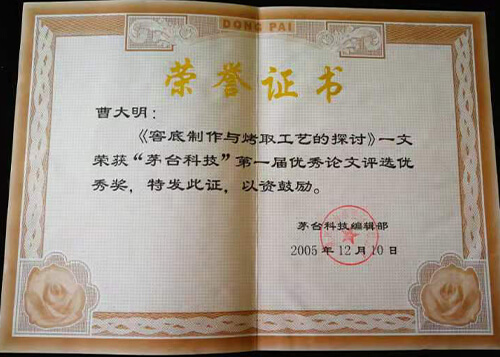 DONG PAI
荣誉证书
曹大明：
《窖底制作与烤取工艺的探讨》一文
荣获“茅台科技”第一届优秀论文评选优
秀奖，特发此证，以资鼓励。
茅台科技编辑部
2005年12月10日